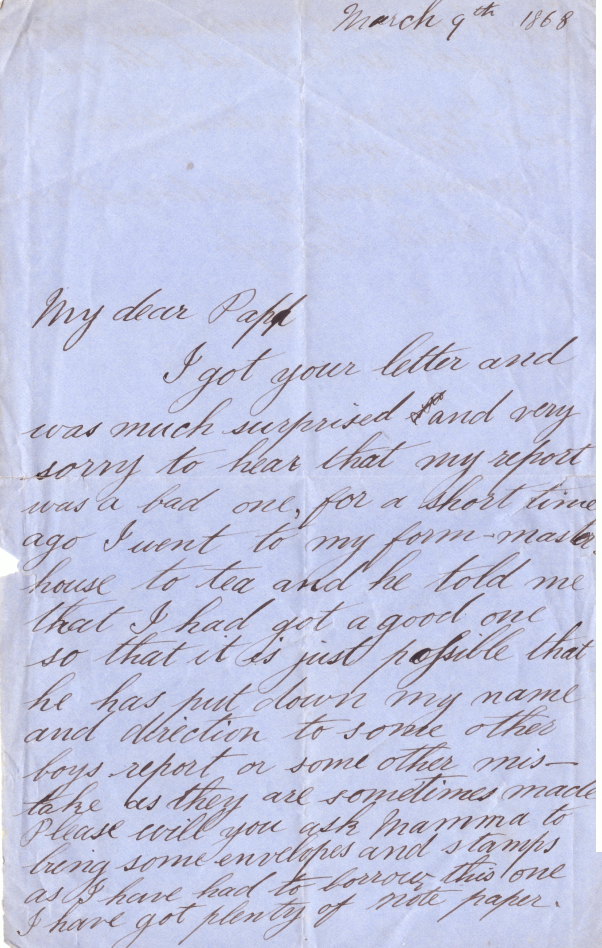 March 9th 1868
My dear Papa
I got your letter and
was much surprised and very
sorry to hear that my report
was a bad one, for a short time
ago I went to my form-master
house to tea and he told me
that I had got a good one
so that it is just possible that
he has put down my name
and direction to some other
boys report or some other mis-
take as they are sometimes made
Please will you ask Mamma to
bring some envelopes and stamps
as I have had to borrow this one
I have got plenty of note paper.